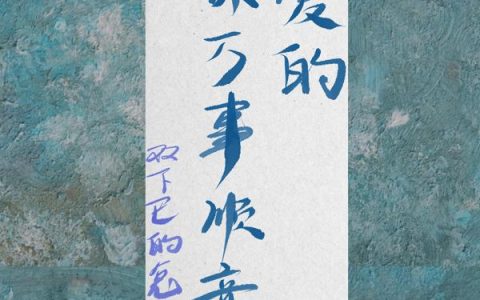 爱的
万事顺意
双下巴的兔